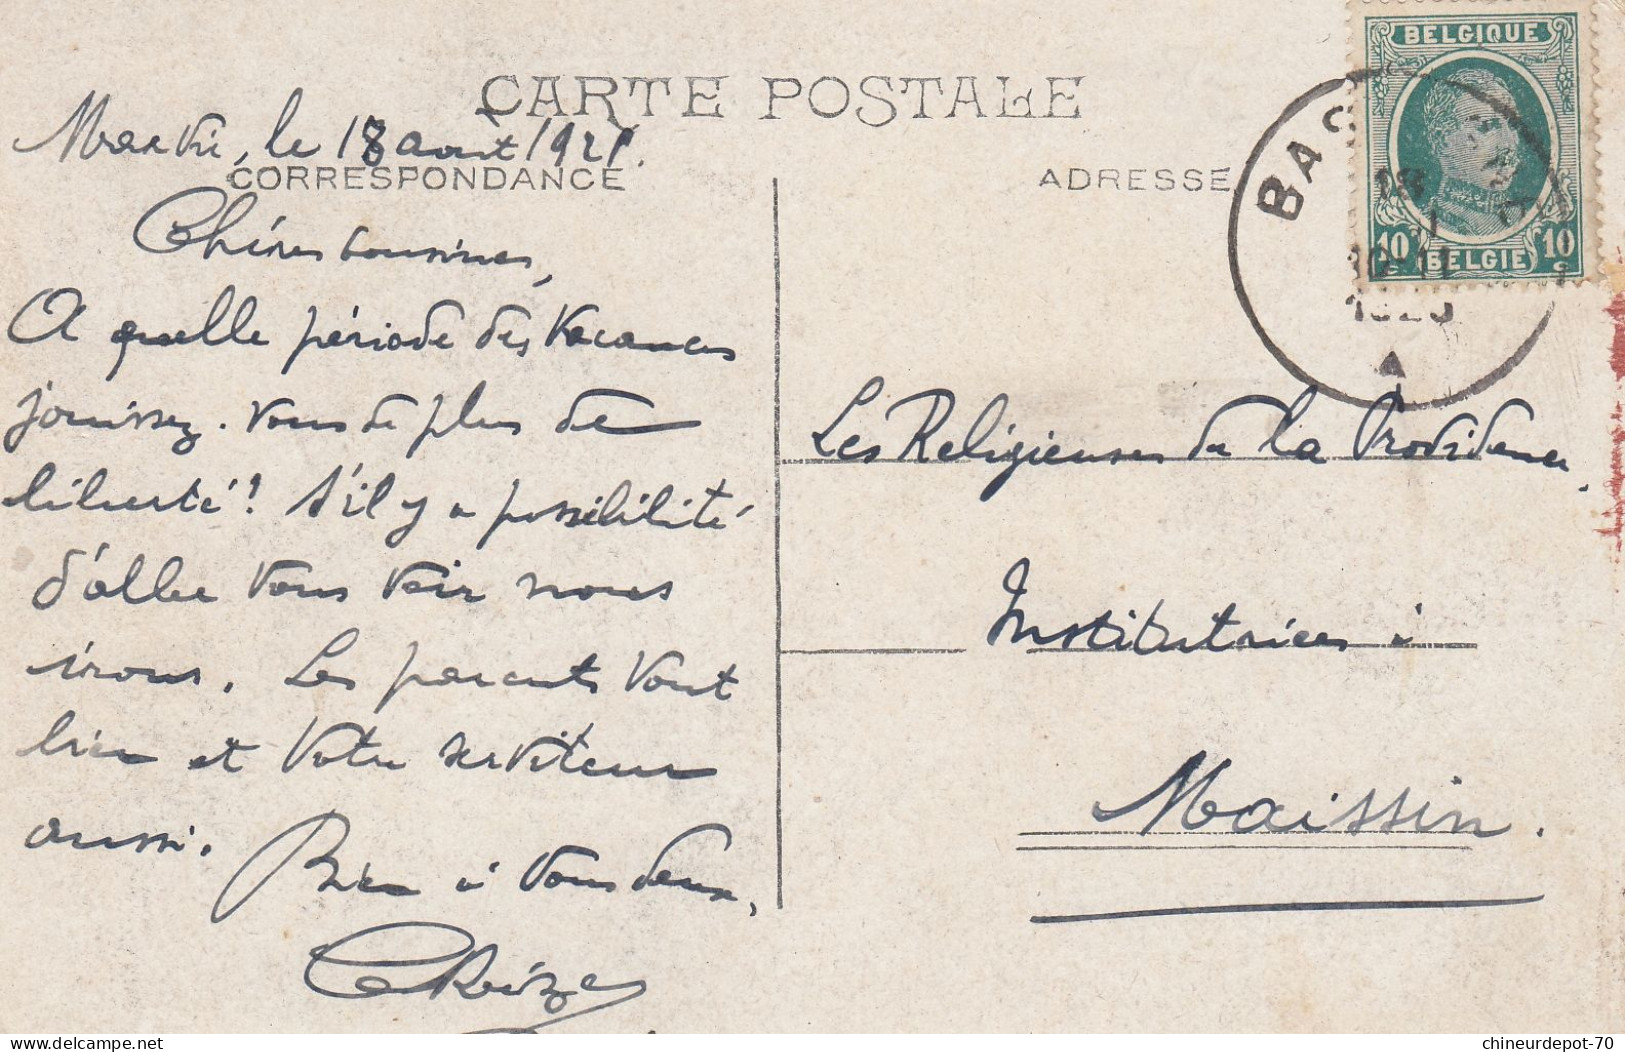 CARTE POSTALE
Marvie, le 18 août 192
CORRESPONDANCE
Chères Cousines,
A quelle période des Vacances
jouissez-vous de plus de
liberté! S'il y a possibilité
d'aller vous voir nous
irons. Les parents vont
bien et votre serviteur
aussi.
Bien à vous deux,
ADRESSE
Les Religieuses de la Providence
Institutrices à
Maissin.
BELGIQUE
10 c BELGIE 10 c
BAS
18
10-11
A
chineurdepot-70